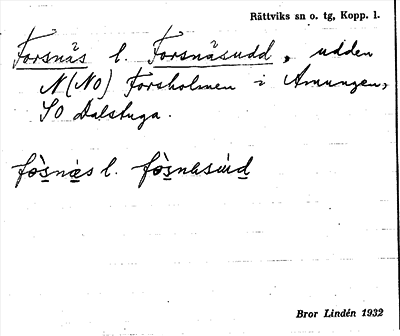 Rättviks sn o. tg, Kopp. l.
Forsnäs l. Forsnäsudd, udden
N(NO) Forsholmen i Amungen,
SO Dalstuga.
fòsnæs l.
Bror Lindén 1932